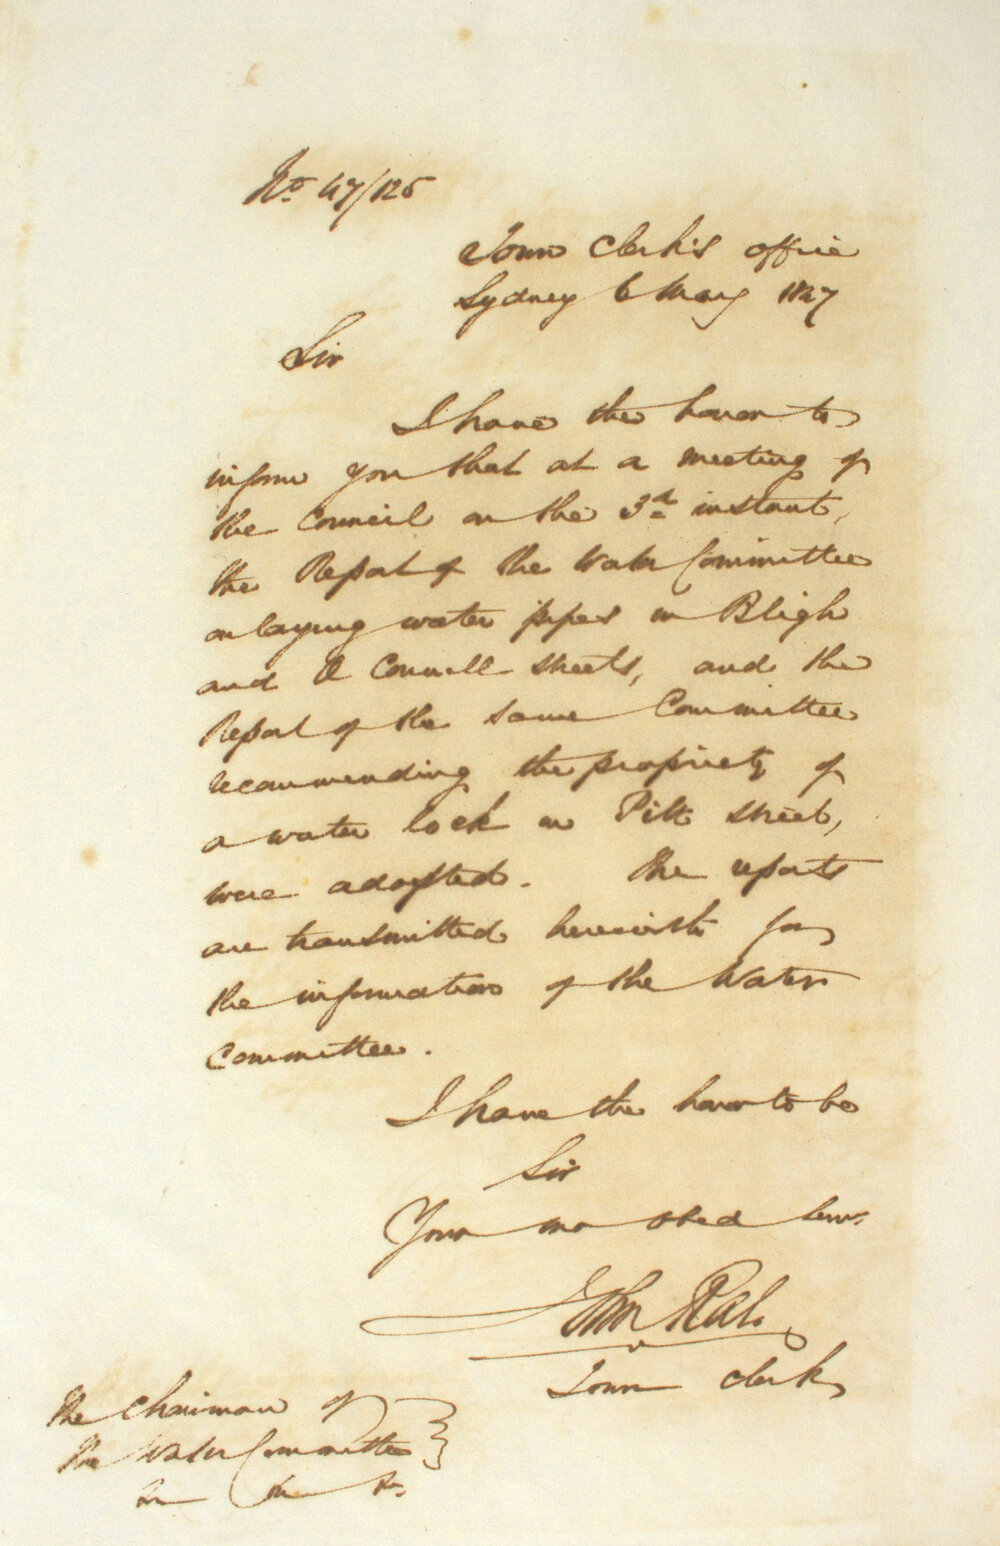 No 47/125
Town Clerk's office
Sydney 6 May 1847
Sir
I have the honor to
inform you that at a meeting of
the Council on the 3d instant,
the Report of the Water Committee
on laying water pipes in Bligh
and O Connell streets, and the
Report of the same Committee
recommending the propriety of
a water lock in Pitt street,
were adopted. The reports
are transmitted herewith for
the information of the Water
Committee.
I have the honor to be
Sir
Your mo obed serv
John Rae
Town Clerk
The Chairman of
the Water Committee